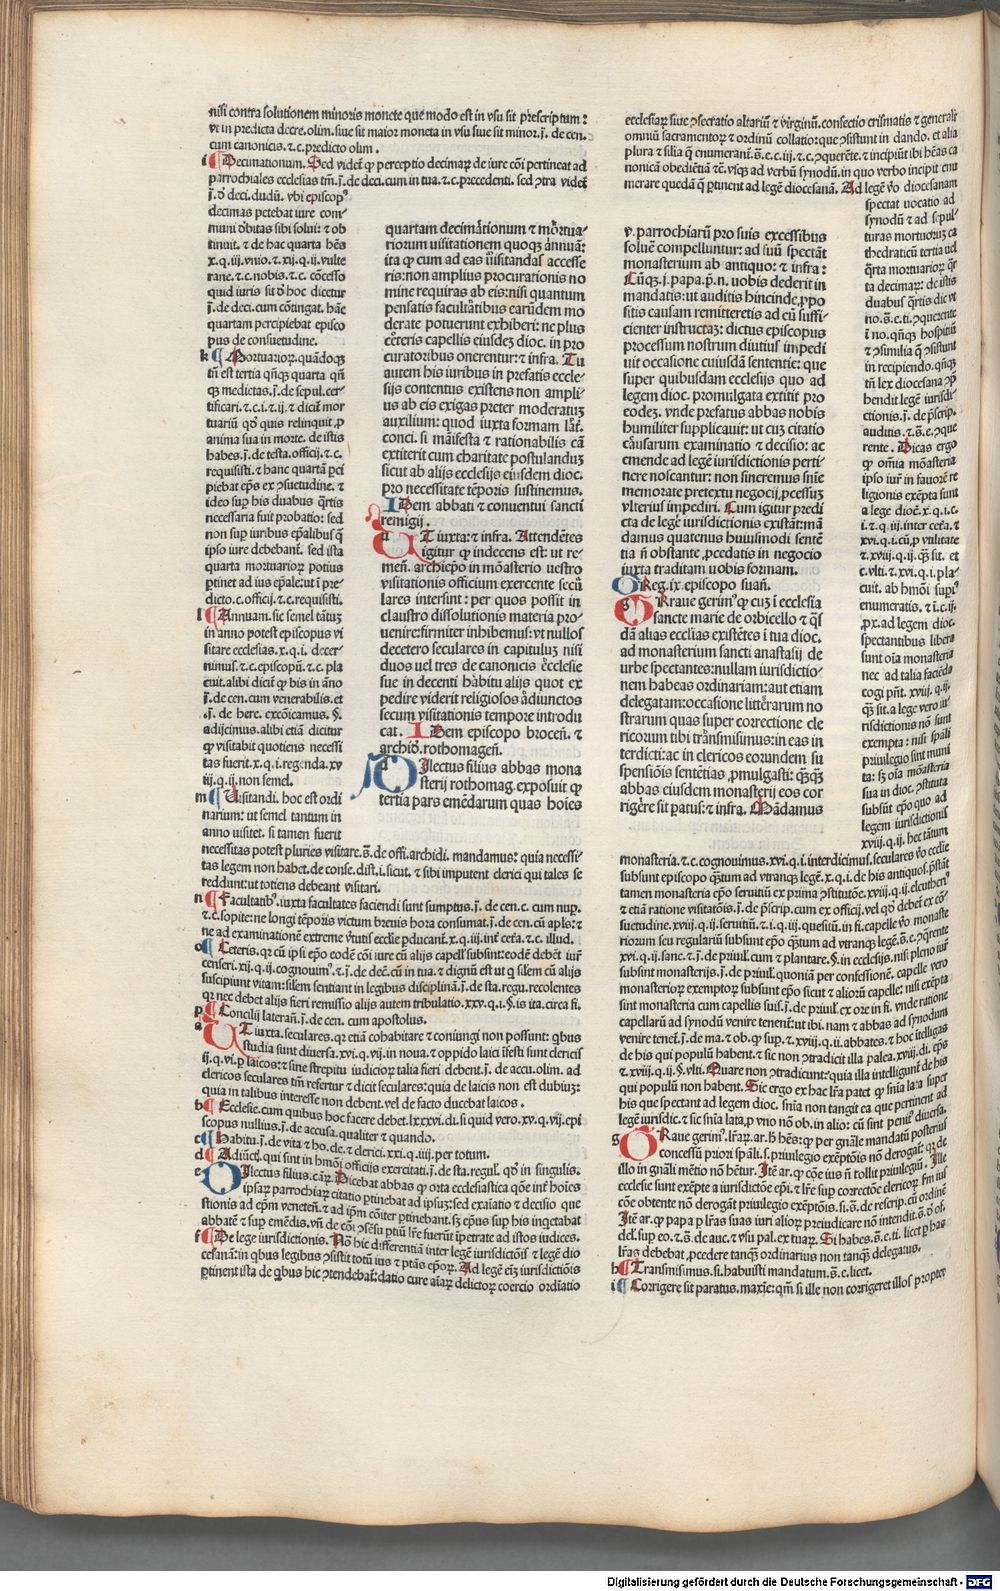 nisi contra solutionem minoris monete que modo est in vsu sit prescriptum:
vt in predicta decre. olim. siue sit maior moneta in vsu siue sit minor. j̄. de cen.
cum canonicis. ⁊ c. predicto olim.
i Decimationum. Sed videt̄ ꝙ perceptio decimaꝝ de iure cōi pertineat ad
parrochiales ecclesias tm̄. j̄. de deci. cum in tua. ⁊ c. precedenti. sed ꝯtra videt̄
j̄. ō deci. dudū. vbi episcopꝰ
decimas petebat iure com-
muni ōbitas sibi solui: ⁊ ob
tinuit. ⁊ de hac quarta hēs
x. q. iij. vnio. ⁊ xij. q. ij. vulte
rane. ⁊ c. nobis. ⁊ c. cōcesso
quid iuris sit ō hoc dicetur
j̄. de deci. cum cōtingat. hāc
quartam percipiebat episco
pus de consuetudine.
k Mortuarioꝝ. quādoqꝫ
tn̄ est tertia qn̄qꝫ quarta qn̄
qꝫ medietas. j̄. de sepul. cer-
tificari. ⁊ c. i. ⁊ ij. ⁊ dicit̄ mor
tuariū qđ quis relinquit ꝓ
anima sua in morte. de istis
habes. j̄. de testa. officij. ⁊ c.
requisisti. ⁊ hanc quartā ꝑci
piebat ep̄s ex ꝯsuetudine. ⁊
ideo suꝑ his duabus q̄rtis
necessaria fuit probatio: sed
non sup iuribus ep̄alibus q̄
ipso iure debebant̄. sed ista
quarta mortuarioꝝ potius
ꝑtinet ad ius ep̄ale: ut ī pre-
dicto. c. officij. ⁊ c. requisisti.
l Annuam. sic semel tātuꝫ
in anno potest episcopus vi
sitare ecclesias. x. q. i. decer-
nimus. ⁊ c. episcopū. ⁊ c. pla
cuit. alibi dicit̄ ꝙ bis in āno
j̄. de cen. cum venerabilis. et
.j̄. de here. excōicamus. §.
adijcimus. alibi etiā dicitur
ꝙ visitabit quotiens necessi
tas fuerit. x. q. i. regenda. xv
iij. q. ij. non semel.
m Uisitandi. hoc est ordi
narium: ut semel tantum in
anno visitet. si tamen fuerit
necessitas potest pluries visitare. s̄. de offi. archidi. mandamus: quia necessi-
tas legem non habet. de conse. dist. i. sicut. ⁊ sibi imputent clerici qui tales se
reddunt: ut totiens debeant visitari.
n Facultatibꝰ. iuxta facultates faciendi sunt sumptus. j̄. de cen. c. cum nuꝑ.
⁊ c. sopite: ne longi tēporis victum breuis hora consumat. j̄. de cen. cū apls: ⁊
ne ad examinationē extreme v̄tutis ecclie ꝑducant̄. x. q. iij. int̄ cet̄a. ⁊ c. illud.
o Ceteris. qꝛ cū ipsi ep̄o eodē cōi iure cū alijs capell̄ subsunt: eodē debēt iur̄
censeri. xij. q. ij. cognouimꝰ. ⁊ j̄. de deci. cū in tua. ⁊ dignū est ut ꝙ silem cū alijs
suscipiunt vitam: silem sentiant in legibus disciplinā. j̄. de sta. regu. recolentes
qꝛ nec debet alijs fieri remissio alijs autem tribulatio. xxv. q. i. §. is ita. circa fi.
p Concilij laterañ. j̄. de cen. cum apostolus.
a UT iuxta. seculares. qꝛ etiā cohabitare ⁊ coniungi non possunt: qbus
studia sunt diuersa. xvi. q. vij. in noua. ⁊ oppido laici ifesti sunt clericis
ij. q. vi. ꝑ laicos: ⁊ sine strepitu iudicioꝝ talia fieri debent. j̄. de accu. olim. ad
clericos seculares tm̄ refertur ⁊ dicit seculares: quia de laicis non est dubiuꝫ:
quia in talibus interesse non debent. vel de facto ducebat laicos.
b Ecclesie. cum quibus hoc facere debet. lxxxvi. di. si quid vero. xv. q. vij. epi
scopus nullius. j̄. de accusa. qualiter ⁊ quando.
c Habitu. j̄. de vita ⁊ ho. de. ⁊ cleric̄. xxi. q. iiij. per totum.
d Adiūcti. qui sint in hmōi officijs exercitati. j̄. de sta. regul. qđ in singulis.
e DIlectus filius. cār̄. Dicebat abbas ꝙ orta ecclesiastica qōe int̄ hoīes
ipsaꝝ parrochiaꝝ citatio ꝑtinebat ad ipsuꝫ: sed exaīatio ⁊ decisio que
stionis ad ep̄m venetēn̄. ⁊ ad ip̄m cōiter ꝑtinebant. sꝫ ep̄us sup his ingetabat
abbatē ⁊ sup emēdis. vn̄ de cōi ꝯsēsu ptiū lr̄e fuerūt īpetrate ad istos iudices.
f De lege iurisdictionis. Nō hic differentiā inter legē iurisdictōis ⁊ legē dio
cesanā: in qbus legibus ꝯsistit totū ius ⁊ ptās ep̄oꝝ. Ad legē eiꝫ iurisdictiōis
ꝑtinent ista de qbus hic ꝯtendebat̄: datio cure aīaꝝ delictoꝝ coercio ordiatio
quartam decimātionum ⁊ mōrtua-
riorum uisitationem quoqꝫ ānnuā:
ita ꝙ cum ad eas uisitandas accesse
ris: non amplius procurationis no
mine requiras ab eis: nisi quantum
pensatis facultātibus earūdem mo
derate potuerunt exhiberi: ne plus
cēteris capellis eiusdeꝫ dioc. in pro
curatoribus onerentur: ⁊ infra. Tu
autem his iuribus in prefatis eccle-
sijs contentus existens non ampli-
us ab eis exigas preter moderatuꝫ
auxilium: quod iuxta formam lāt̄.
conci. si mānifesta ⁊ rationabilis cā
extiterit cum charitate postulanduꝫ
sicut ab alijs ecclesijs eiusdem dioc.
pro necessitate tēporis sustinemus.
IDem abbati ⁊ conuentui sancti
remigij.
a UT iuxta: ⁊ infra. Attendētes
igitur ꝙ indecens est: ut re-
meñ. archiep̄o in mōasterio uestro
visitationis officium exercente secū
lares intersint: per quos possit in
claustro dissolutionis materia pro-
uenire: firmiter inhibemus: vt nullos
decetero seculares in capituluꝫ nisi
duos uel tres de canonicis ēcclesie
sue in decenti hābitu alijs quot ex
pedire viderit religiosos ādiunctos
secum visitationis tempore introdu
cat. IDem episcopo broceñ. ⁊
archiđ. rothomageñ.
DIlectus filius abbas mona
sterij rothomag. exposuit ꝙ
tertia pars emēdarum quas hoīes
ecclesiaꝝ siue ꝯsecratio altariū ⁊ virginū. confectio crismatis ⁊ generalīt
omniū sacramentoꝝ ⁊ ordinū collatio: que ꝯsistunt in dando. et alia
plura ⁊ silia q̄ enumerant̄. s̄. e. c. iij. ⁊ c. ꝯquerēte. ⁊ incipiūt ibi hēas ca
nonicā obediētiā ⁊c̄. vsqꝫ ad verbū synodū. in quo verbo incipit enu
merare quedā q̄ ꝑtinent ad legē diocesanā. Ad legē v̄o diocesanam
spectat uocatio ad
synodū ⁊ ad sepul-
turas mortuoruꝫ ca
thedraticū tertia ud
q̄rta mortuarioꝝ q̄r
ta decimaꝝ: de istis
duabus q̄rtis dic̄ vt
no. s̄. e. ti. ꝯquerente
ī no. qn̄qꝫ hospitiū
⁊ ꝯsimilia q̄ ꝯsistunt
in recipiendo. qn̄qꝫ
tn̄ lex diocesana ꝯp̄
hendit legē iurisdi-
ctionis. j̄. de p̄scrip.
auditis. ⁊ s̄. e. ꝯque
rente. Dicas ergo
ꝙ om̄ia mōasteria
ipso iur̄ in fauorē re
ligionis exēpta sunt
a lege dioc̄. x. q. i. c.
i. ⁊ q. iij. inter cet̄a. ⁊
xvi. q. i. cū ꝓ vtilitate
⁊ xviij. q. ij. q̄ sit. et
c. vlti. ⁊ xvi. q. i. pla-
cuit. ab hmōi supꝰ
enumeratis. ⁊ ī. c. ij.
.px. ad legem dioc.
spectantibus libera
sunt oīa mōasteria
nec ad talia faciēda
cogi pn̄t. xviij. q. ij.
q̄ sit. a lege vero iu-
risdictionis nō sunt
exempta: nisi spāli
priuilegio sint muni
ta: sꝫ oīa mōasteria
sua in dioc. ꝯstituta
subsūt ep̄o quo ad
legem iurisdictionis
xviij. q. ij. hec tātum
v. parrochiarū pro suis excessibus
soluē compelluntur: ad suū spectāt
monasterium ab antiquo: ⁊ infra:
Cūqꝫ. j. papa. p̄. n. uobis dederit in
mandatis: ut auditis hincinde ꝓpo
sitis causam remitteretis ad eū suffi-
cienter instructaꝫ: dictus episcopus
processum nostrum diutius impedi
uit occasione cuiusdā sententie: que
super quibusdam ecclesijs quo ad
legem dioc. promulgata extitit pro
eodeꝫ. vnde prefatus abbas nobis
humiliter supplicauit: ut cuꝫ citatio
cāusarum examinatio ⁊ decisio: ac
emende ad legē iurisdictionis perti-
nere noscantur: non sineremus snīe
memorate pretextu negocij ꝓcessuꝫ
vlterius impediri. Cum igitur predi
cta de lege iurisdictionis existāt: mā
damus quatenus huiusmodi sentē
tia n̄ obstante ꝓcedatis in negocio
iuxta traditam uobis formam.
GReg. ix. episcopo suañ.
g GRaue gerimꝰ ꝙ cuꝫ ī ecclesia
sancte marie de orbicello ⁊ q̄s
dā alias ecclīas existētes ī tua dioc.
ad monasterium sancti anastasij de
urbe spectantes: nullam iurisdictio-
nem habeas ordinariam: aut etiam
delegatam: occasione littērarum no
strarum quas super correctione cle
ricorum tibi trānsmisimus: in eas in
terdicti: ac in clericos eorundem su
spensiōis sentētias ꝓmulgasti: q̄ꝗꝫ
abbas eiusdem monasterij eos cor
rigēre sit patus: ⁊ infra. Mādamus
monasteria. ⁊ c. cognouimus. xvi. q. i. interdicimus. seculares v̄o ecclie
subsunt episcopo q̄ꝫtum ad vtranqꝫ legē. x. q. i. de his antiquos. p̄stāt
tamen monasteria ep̄o seruitiū ex prima ꝯstitutōe. xviij. q. ij. eleutherꝰ
⁊ etiā ratione visitatōis. j̄. de p̄scrip. cum ex officij. vel qđ debet ex cō
suetudine. xviij. q. ij. seruitiū. ⁊ i. q. iij. quesitū. in fi. capelle v̄o monaste
riorum seu regulariū subsunt ep̄o q̄ꝫtum ad vtranqꝫ legē. s̄. e. ꝯq̄rente
xvi. q. ij. sanc. ⁊ j̄. de priuil̄. cum ⁊ plantare. §. in ecclesijs. nisi pleno iur̄
subsint monasterijs. j̄. de priuil̄. quoniā per confessionē. capelle vero
monasterioꝝ exemptoꝝ subsunt ep̄o sicut ⁊ aliorū capelle: nisi exēpta
sint monasteria cum capellis suis. j̄. de priuil̄. ex ore in fi. vnde ratione
capellarū ad synodū venire tenent̄: ut ibi. nam ⁊ abbas ad synodum
venire tenet̄. j̄. de ma. ⁊ ob. ꝙ sup. ⁊ xviij. q. ij. abbates. ⁊ hoc ītelligas
de his qui populū habent. ⁊ sic non ꝯtradicit illa palea. xviij. di. ep̄s
⁊ xviij. q. ij. §. vlti. Quare non ꝯtradicunt: quia illa intelligunt̄ de his
qui populū non habent. Sic ergo ex hac lr̄a patet ꝙ snīa la: a super
his que spectant ad legem dioc. snīa non tangit ea que pertinent ad
legē iurisdic̄. ⁊ sic snīa lata ꝓ vno nō ob. in alio: cū sint penitꝰ diuersa.
g GRaue gerimꝰ. lr̄aꝝ. ar. ꝙ hēs: ꝙ per gn̄ale mandatū posterius
concessū priori spāli. s. priuilegio exēptōis nō derogat̄: qꝛ de
illo in gn̄ali mētio nō hētur. Itē ar. ꝙ cōe ius n̄ tollit priuilegiū. Ille
ecclesie sunt exēpte a iurisdictōe ep̄i. ⁊ lr̄e sup correctōe clericoꝝ fm̄ ius
cōe obtente nō derogāt priuilegio exēptōis. si. lr̄. de rescrip. cū ordinē
Itē ar. ꝙ papa ꝑ lr̄as suas iuri alioꝝ preiudicare nō intendit. s̄. ō of.
del. sup eo. ⁊ s̄. de auc. ⁊ vsu pal. ex tuaꝝ. Si habes. s̄. e. ti. licet ꝑ has
lr̄as debebat ꝓcedere tanqꝫ ordinarius non tanqꝫ delegatus.
h Transmisimus. si. habuisti mandatum. s̄. e. licet.
i Corrigere sit paratus. maxīe: qm̄ si ille non corrigeret illos propter
Digitalisierung gefördert durch die Deutsche Forschungsgemeinschaft - DFG